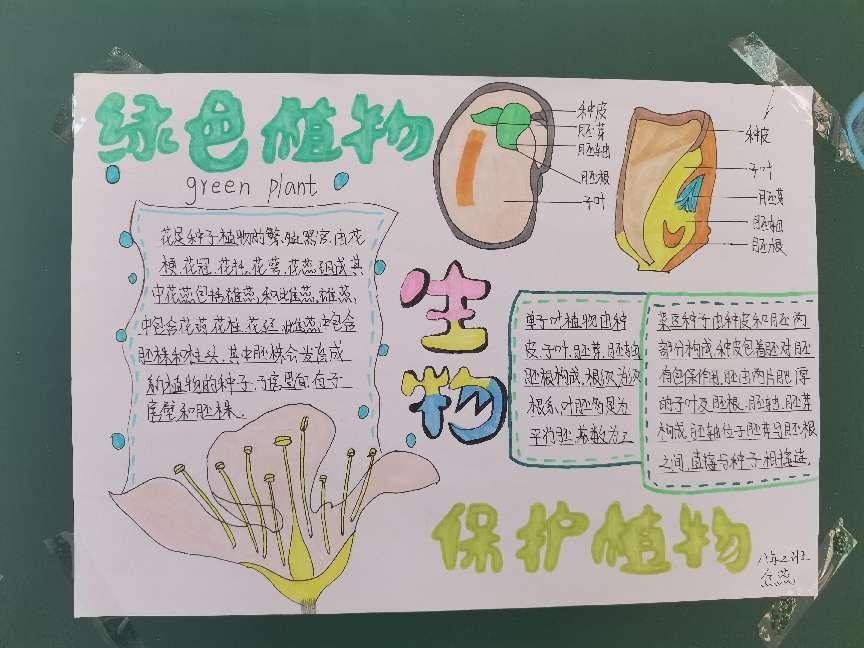 绿色植物
green plant
花是种子植物的繁殖器官,由花
梗、花冠、花托、花萼、花蕊组成其
中花蕊包括雄蕊和雌蕊,雄蕊
中包含花药,花柱,花丝,雌蕊中包含
胚株和柱头,其中胚株会发育成
植物的种子,子房里面有子
房壁和胚株。
种皮
胚芽
胚轴
胚根
子叶
种皮
子叶
胚芽
胚轴
胚根
生物
单子叶植物由种
皮、子叶、胚芽、胚轴
胚根构成,根
根系,叶脉为
平行脉
菜豆种子由种皮和胚两
部分构成,种皮包着胚对胚
有包保作用,胚由两片肥厚
的子叶及胚根、胚轴、胚芽
构成,胚轴位于胚芽与胚根
之间,直接与种子相接连,
保护植物
班